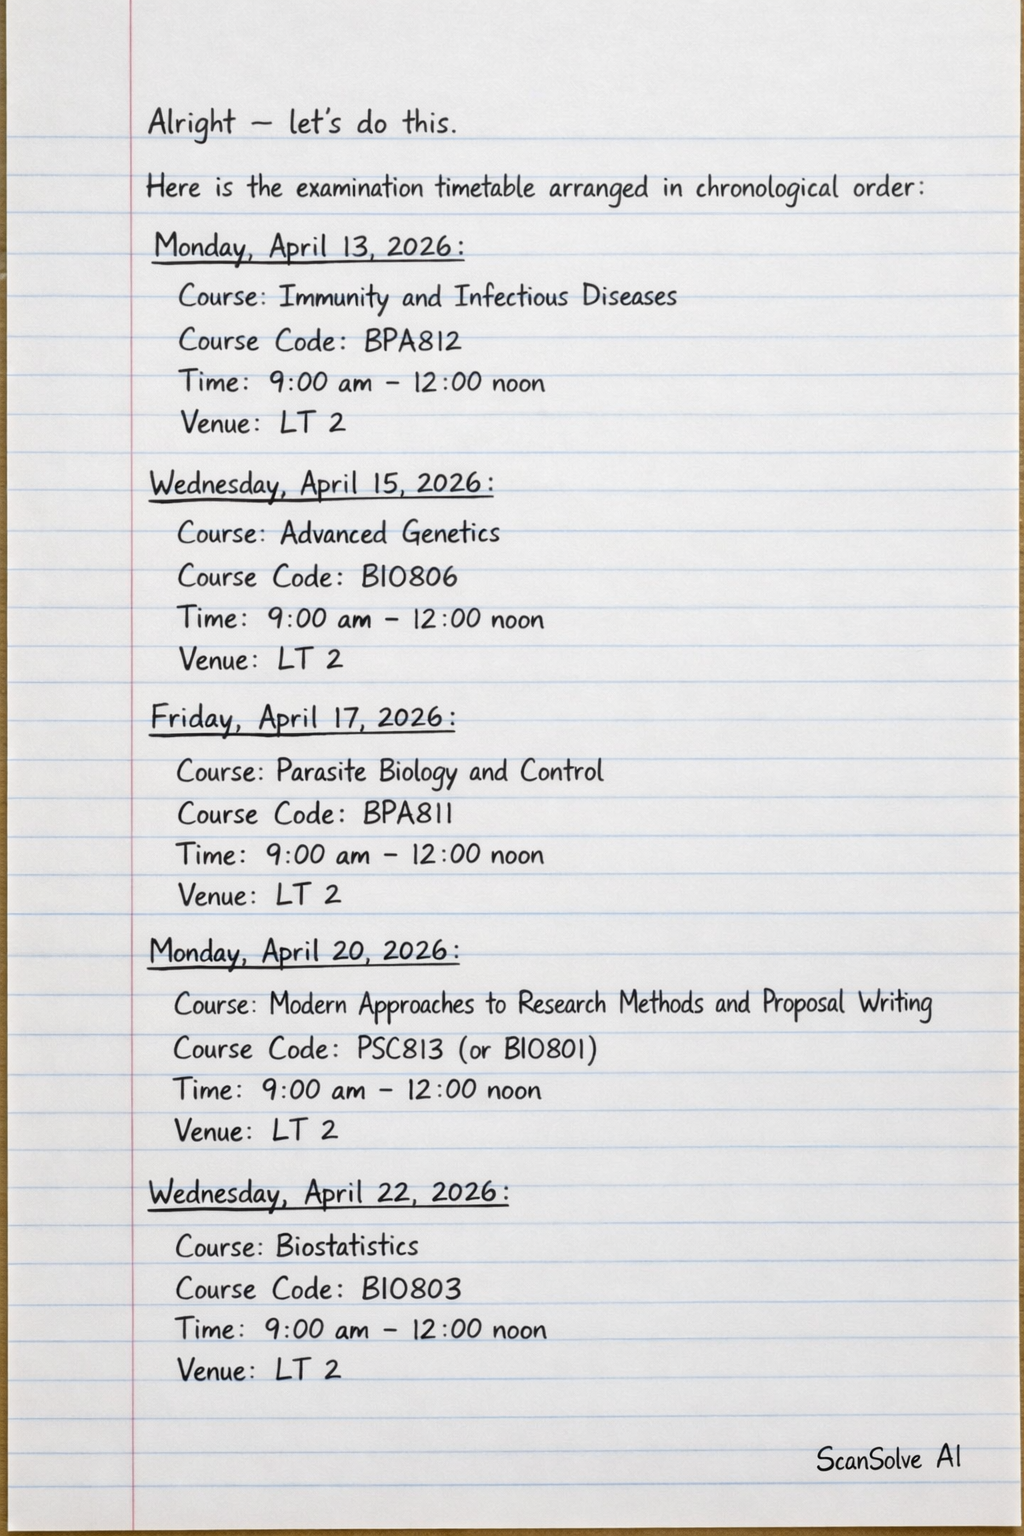 Alright — let's do this.
Here is the examination timetable arranged in chronological order:
Monday, April 13, 2026:
Course: Immunity and Infectious Diseases
Course Code: BPA812
Time: 9:00 am – 12:00 noon
Venue: LT 2
Wednesday, April 15, 2026:
Course: Advanced Genetics
Course Code: BIO806
Time: 9:00 am – 12:00 noon
Venue: LT 2
Friday, April 17, 2026:
Course: Parasite Biology and Control
Course Code: BPA811
Time: 9:00 am – 12:00 noon
Venue: LT 2
Monday, April 20, 2026:
Course: Modern Approaches to Research Methods and Proposal Writing
Course Code: PSC813 (or BIO801)
Time: 9:00 am – 12:00 noon
Venue: LT 2
Wednesday, April 22, 2026:
Course: Biostatistics
Course Code: BIO803
Time: 9:00 am – 12:00 noon
Venue: LT 2
ScanSolve AI